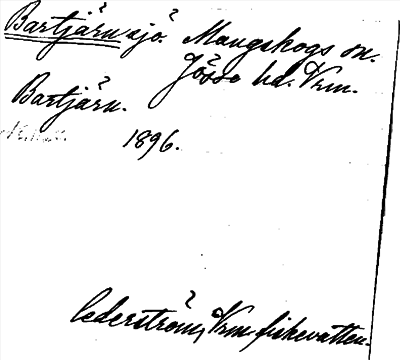 Bartjärn sjö. Mangskogs sn.
Jösse hd. Vrm.
Bartjärn.
1896.
Cederström, Vrm fiskevatten.